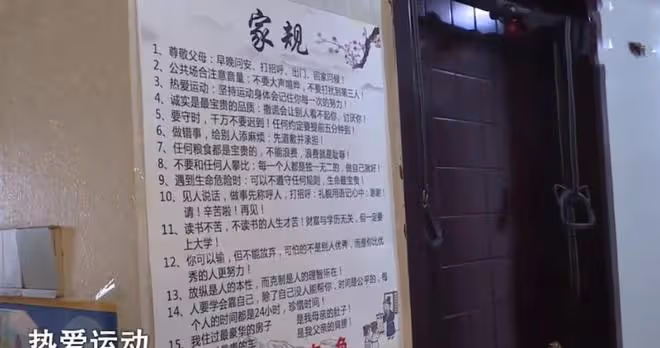 家规
1、尊敬父母：早晚问安、打招呼、出门、回家同样！
2、公共场合注意音量：不要大声喧哗，不要打扰到第三人！
3、热爱运动：坚持运动身体会记住你每一次的努力！
4、诚实是最宝贵的品质：撒谎会让别人看不起你、讨厌你！
5、要守时，千万不要迟到！任何约定要提前五分钟到！
6、做错事，给别人添麻烦：先道歉并承担！
7、任何粮食都是宝贵的，不能浪费，浪费就是耻辱！
8、不要和任何人攀比；每一个人都是独一无二的，做自己就好！
9、遇到生命危险时：可以不遵守任何规则，生命最宝贵！
10、见人说话，做事先称呼人，打招呼：礼貌用语记心中：谢谢！
请！辛苦啦！再见！
11、读书不苦，不读书的人生才苦！财富与学历无关，但一定要
上大学！
12、你可以输，但不能放弃，可怕的不是别人优秀，而是你比优
秀的人更努力！
13、放纵是人的本性，而克制是人的理智所在！
14、人要学会靠自己，除了自己没人能帮你，时间是公平的，每
个人的时间都是24小时，珍惜时间！
15、我住过最豪华的房子 是我母亲的肚子！
是我父亲的肩膀！
热爱运动